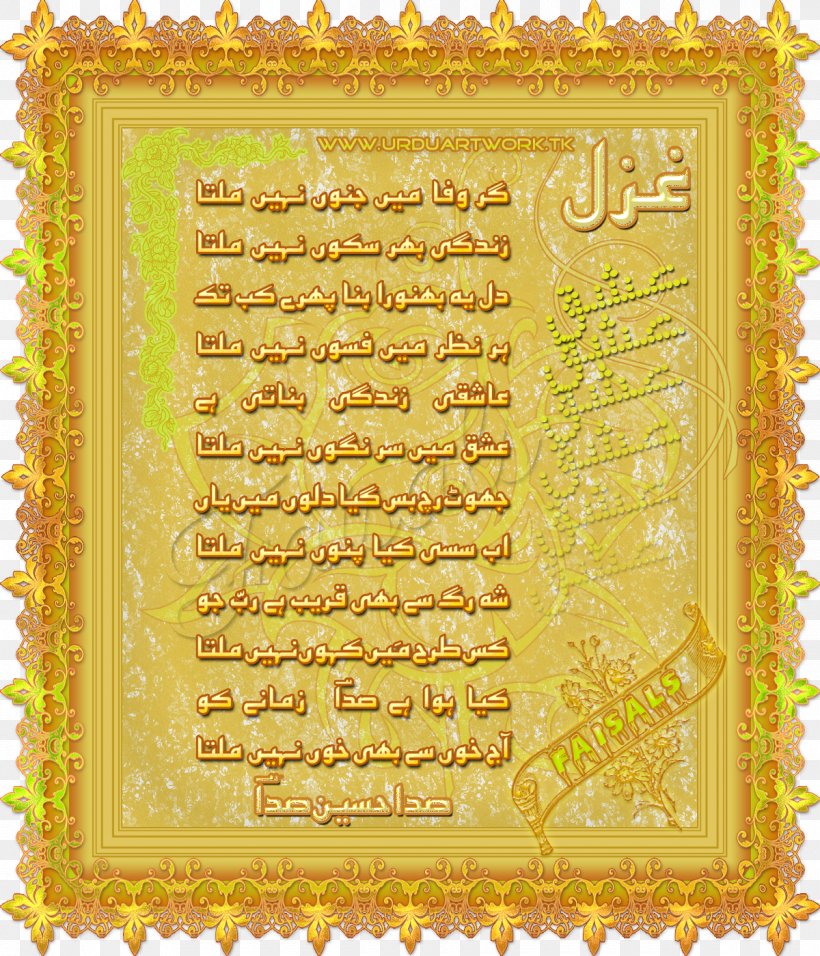 WWW.URDUARTWORK.TK
غزل
گر وفا میں جنوں نہیں ملتا
زندگی بھر سکوں نہیں ملتا
دل یہ بھنورا بنا پھرے کب تک
ہر نظر میں فسوں نہیں ملتا
عاشقی زندگی بناتی ہے
عشق میں سر نگوں نہیں ملتا
جھوٹ رچ بس گیا دلوں میں یاں
اب سسی کیا پنوں نہیں ملتا
شہ رگ سے بھی قریب ہے ربّ جو
کس طرح مَیں کہوں نہیں ملتا
کیا ہوا ہے صداؔ زمانے کو
آج خوں سے بھی خوں نہیں ملتا
صدا حسین صداؔ
FAISALS